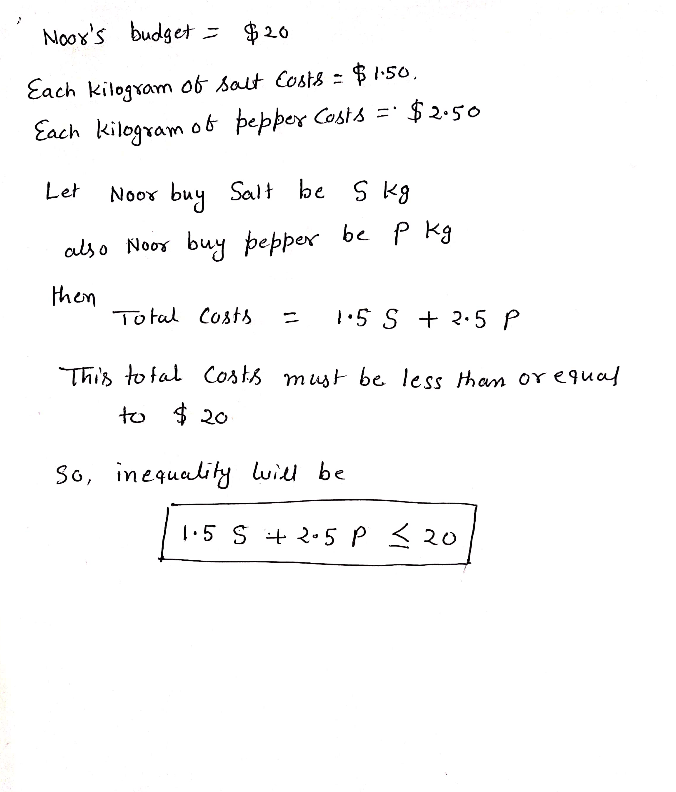 Noor's budget = $20
Each kilogram of salt costs = $1.50.
Each kilogram of pepper costs = $2.50
Let Noor buy Salt be S kg
also Noor buy pepper be P kg
then
Total Costs = 1.5 S + 2.5 P
This total costs must be less than or equal
to $20
So, inequality will be
1.5 S + 2.5 P ≤ 20